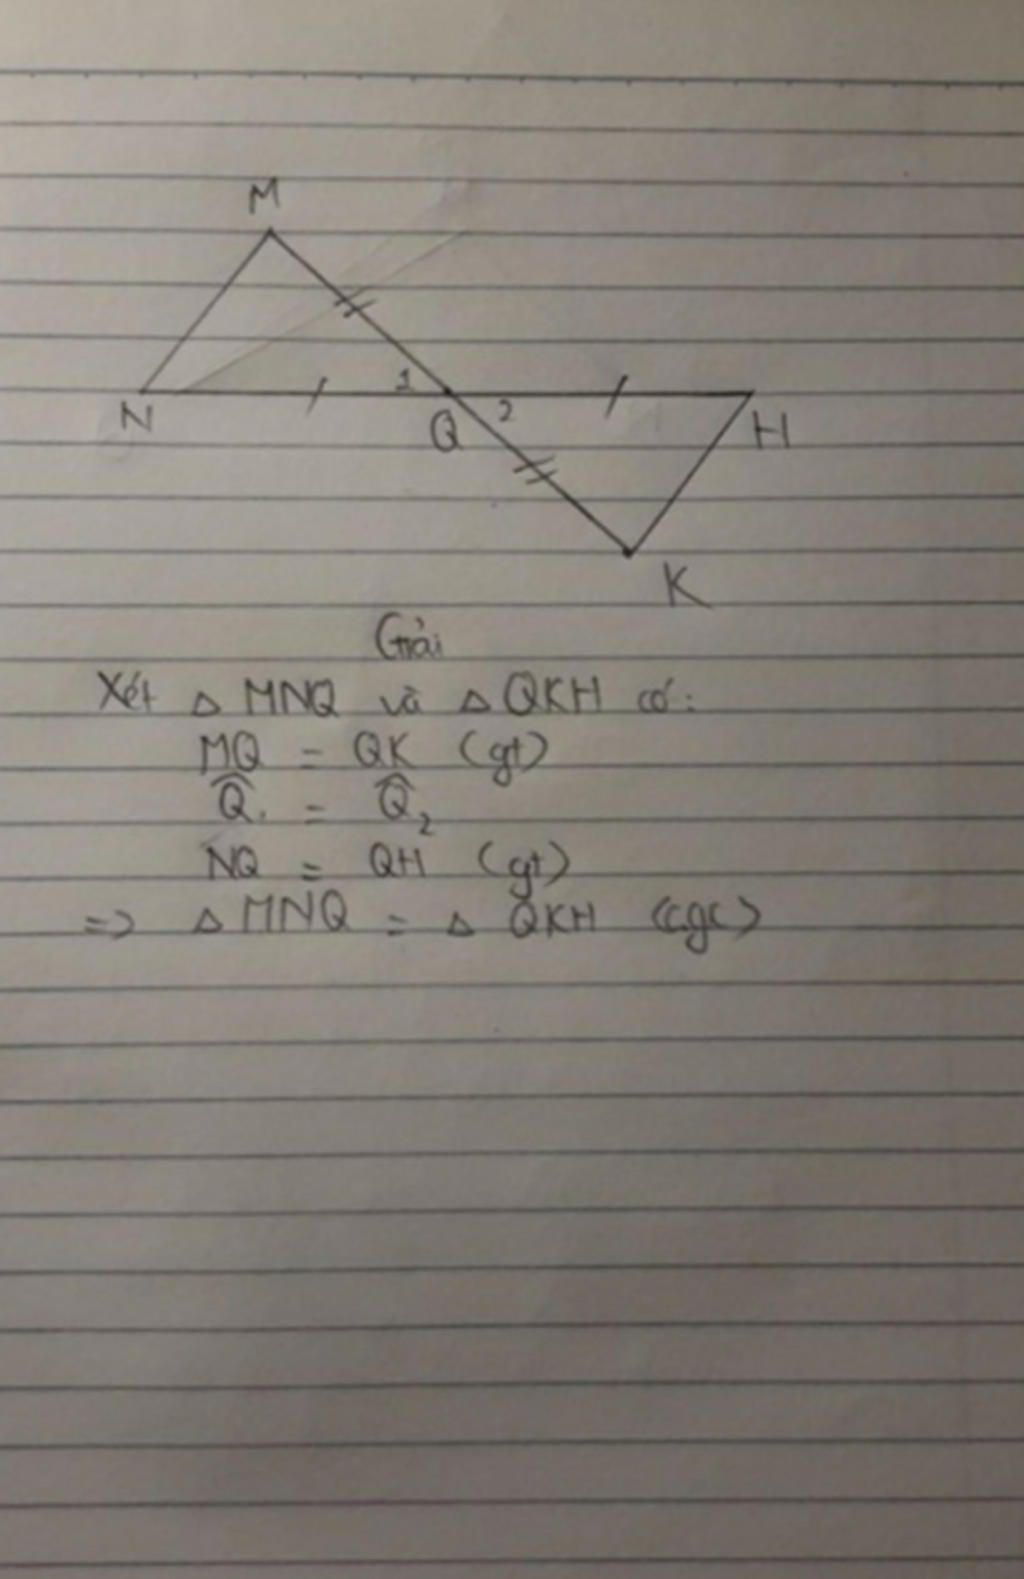 M
N
1
Q
2
H
K
Giải
Xét △ MNQ và △ QKH có:
MQ = QK (gt)
Q̂₁ = Q̂₂
NQ = QH (gt)
=> △ MNQ = △ QKH (cgc)